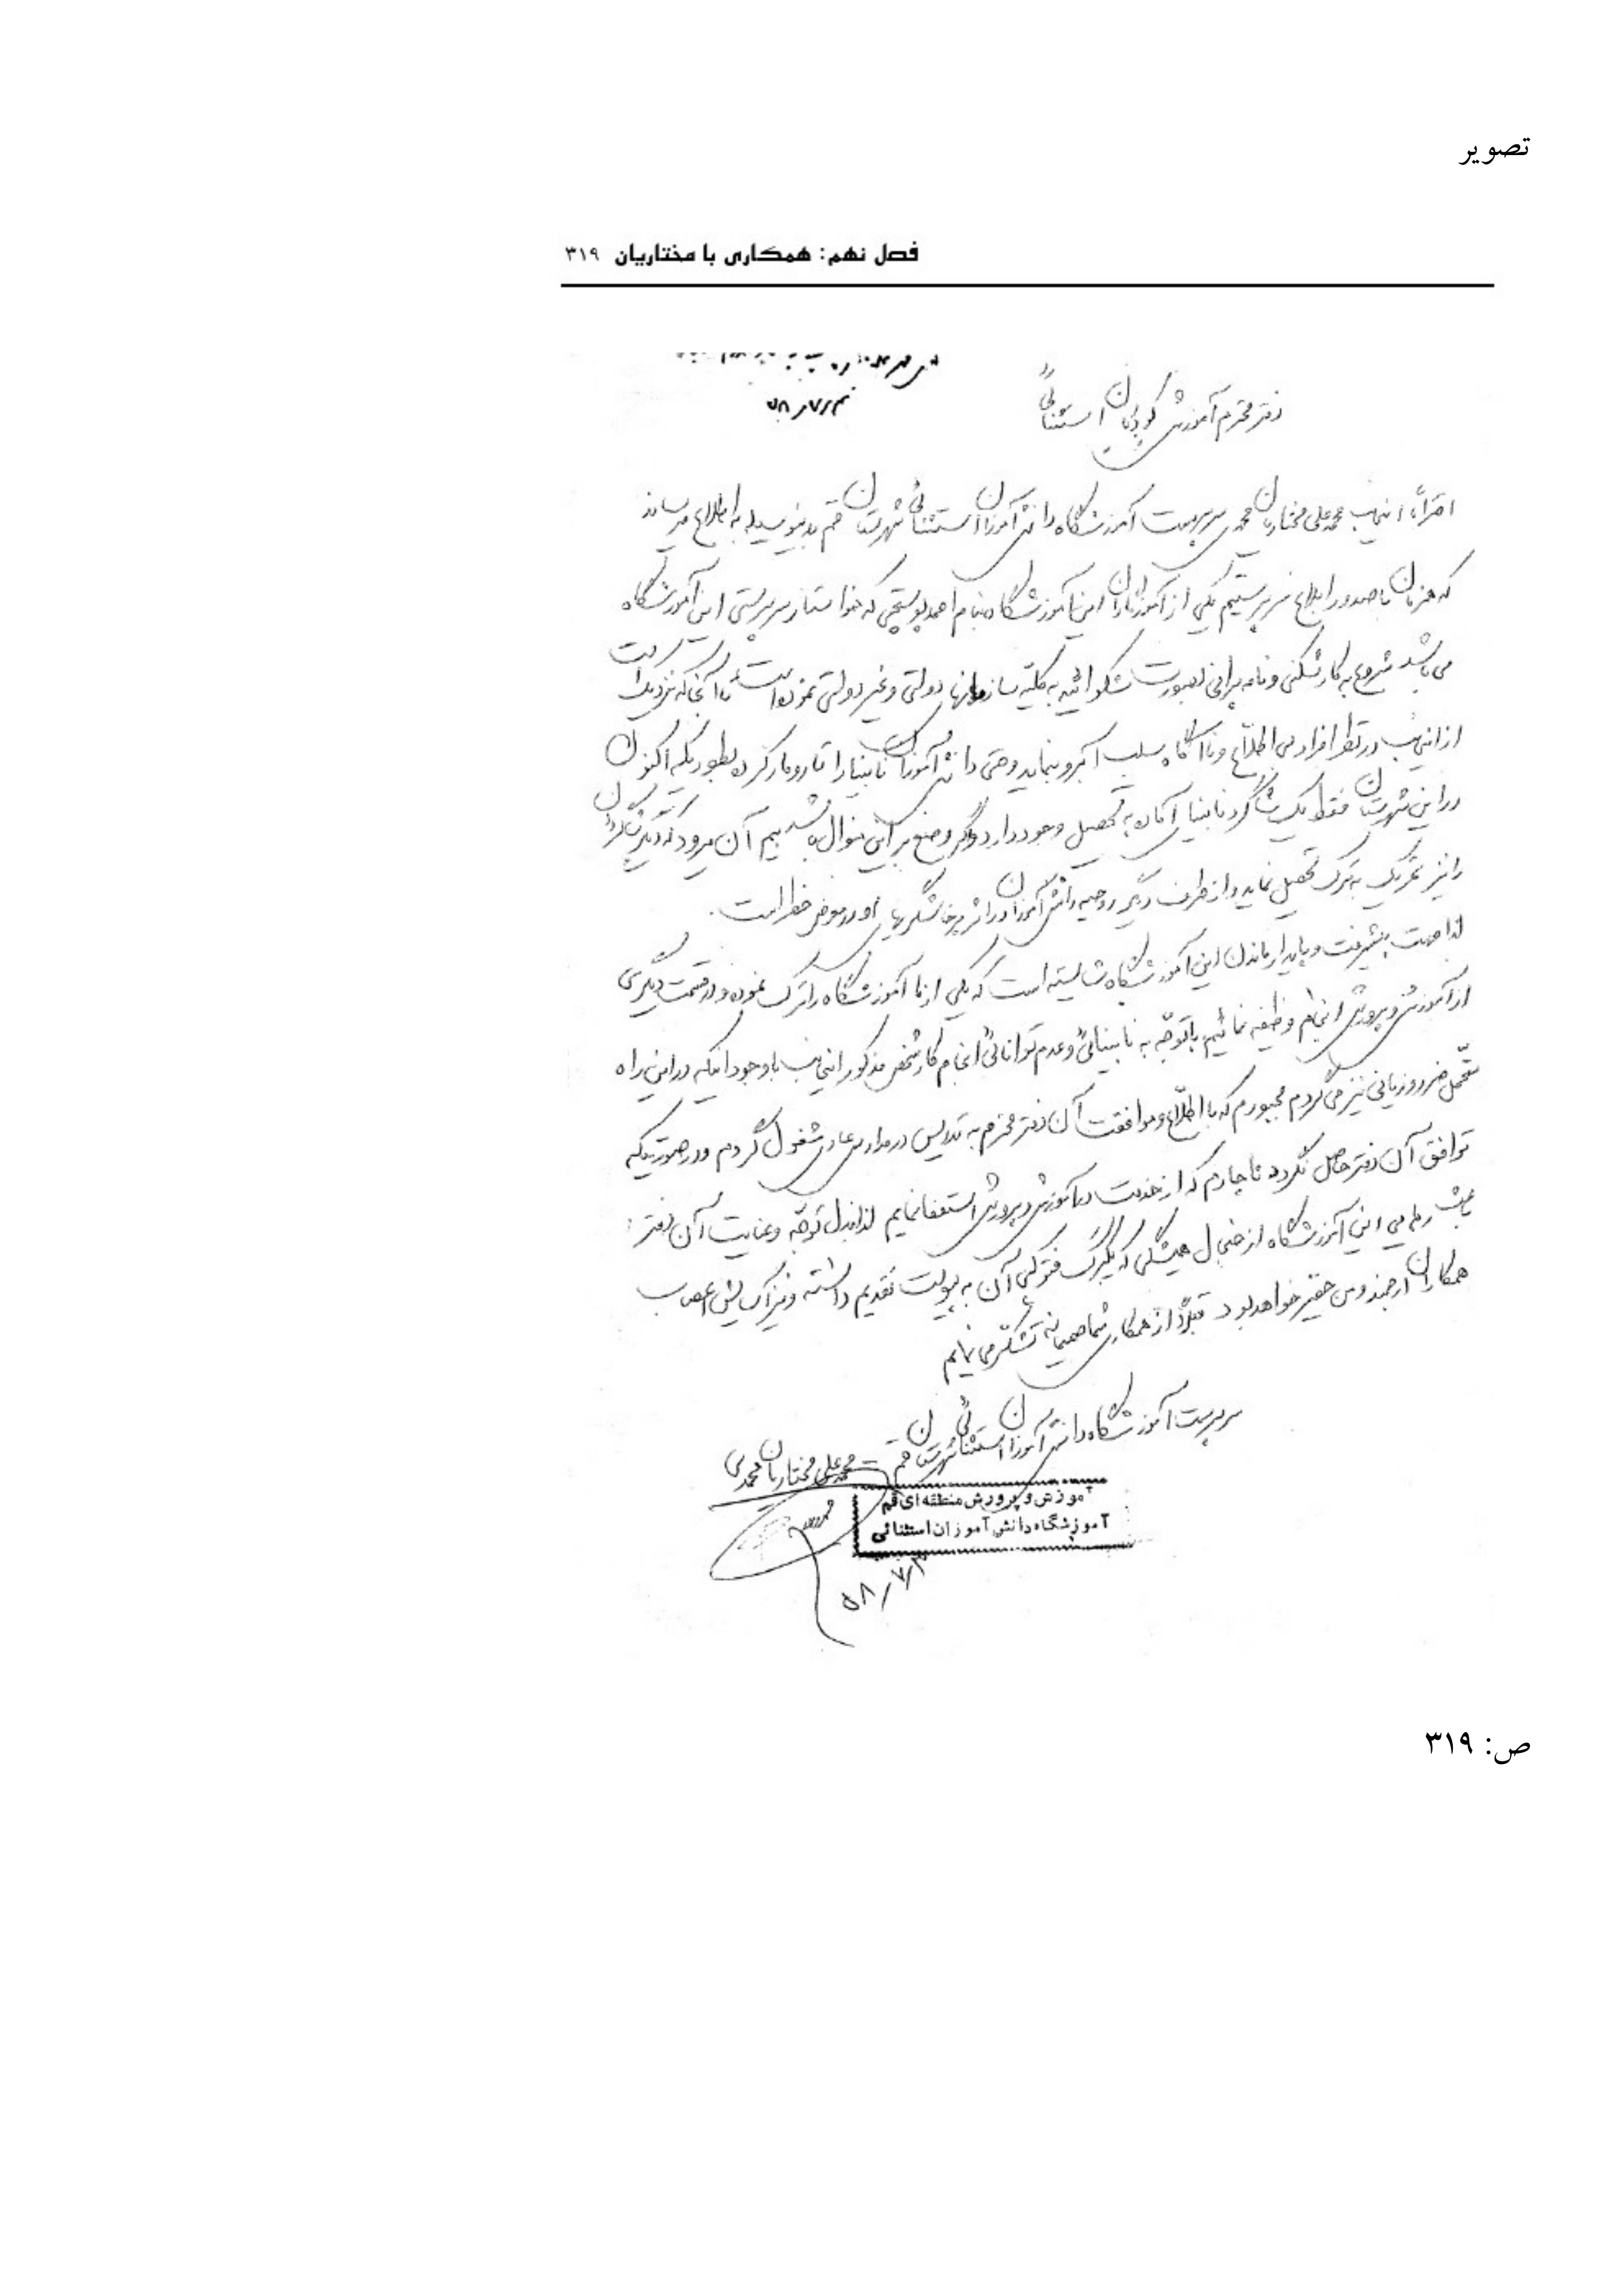 تصویر
فصل نهم: همکاری با مختاریان ۳۱۹
۵۸٫۷٫
دفتر محترم آموزش کودکان استثنائی
احتراماً، اینجانب محمدعلی مختاریان محمدی سرپرست آموزشگاه دانش آموزان استثنائی شهرستان قم بدینوسیله به اطلاع میرساند
که همزمان با صدور ابلاغ سرپرستیم یکی از آموزگاران این آموزشگاه بنام احمد یوستچی که خواستار سرپرستی این آموزشگاه
می باشد شروع به کارشکنی و نامه پرانی بصورت شکوائیه به کلیه سازمانها دولتی و غیر دولتی نموده است تا آنجا که نزدیک است
از اینجانب در نظر افراد بی اطلاع و ناآگاه سلب آبرو بنماید و حتی دانش آموزان نابینا را تار و مار کرده بطوریکه اکنون
در این شهرستان فقط یک شاگرد نابینا آماده به تحصیل وجود دارد و اگر وضع بر این منوال باشد بیم آن میرود که دیگر شاگردان
را نیز تحریک به ترک تحصیل نماید و از طرف دیگر روحیه دانش آموزان در اثر پرخاشگریهای او در معرض خطر است.
لذا جهت پیشرفت و پایدار ماندن این آموزشگاه شایسته است که یکی از ما آموزشگاه را ترک نموده و در قسمت دیگری
از آموزش و پرورش انجام وظیفه نمائیم. با توجه به نابینائی و عدم توانائی انجام کار شخص مذکور اینجانب با وجود اینکه در این راه
متحمل ضرر و زیانی نیز می گردم مجبورم که با اطلاع و موافقت آن دفتر محترم به تدریس در مدارس عادی مشغول گردم و در صورتیکه
توافق آن دفتر حاصل نگردد ناچارم که از خدمت در آموزش و پرورش استعفا نمایم لذا بذل توجه و عنایت آن دفتر
باعث رهایی این آموزشگاه از جنجال همیشگی که یکبرگ فتوکپی آن به پیوست تقدیم داشته و نیز آسایش اعصاب
همکاران ارجمند و من حقیر خواهد بود قبلاً از همکاری شما صمیمانه تشکر می نمایم
سرپرست آموزشگاه دانش آموزان استثنائی شهرستان قم - محمدعلی مختاریان محمدی
آموزش و پرورش منطقه ای قم
آموزشگاه دانش آموزان استثنائی
۵۸٫۷٫۳
ص: ۳۱۹